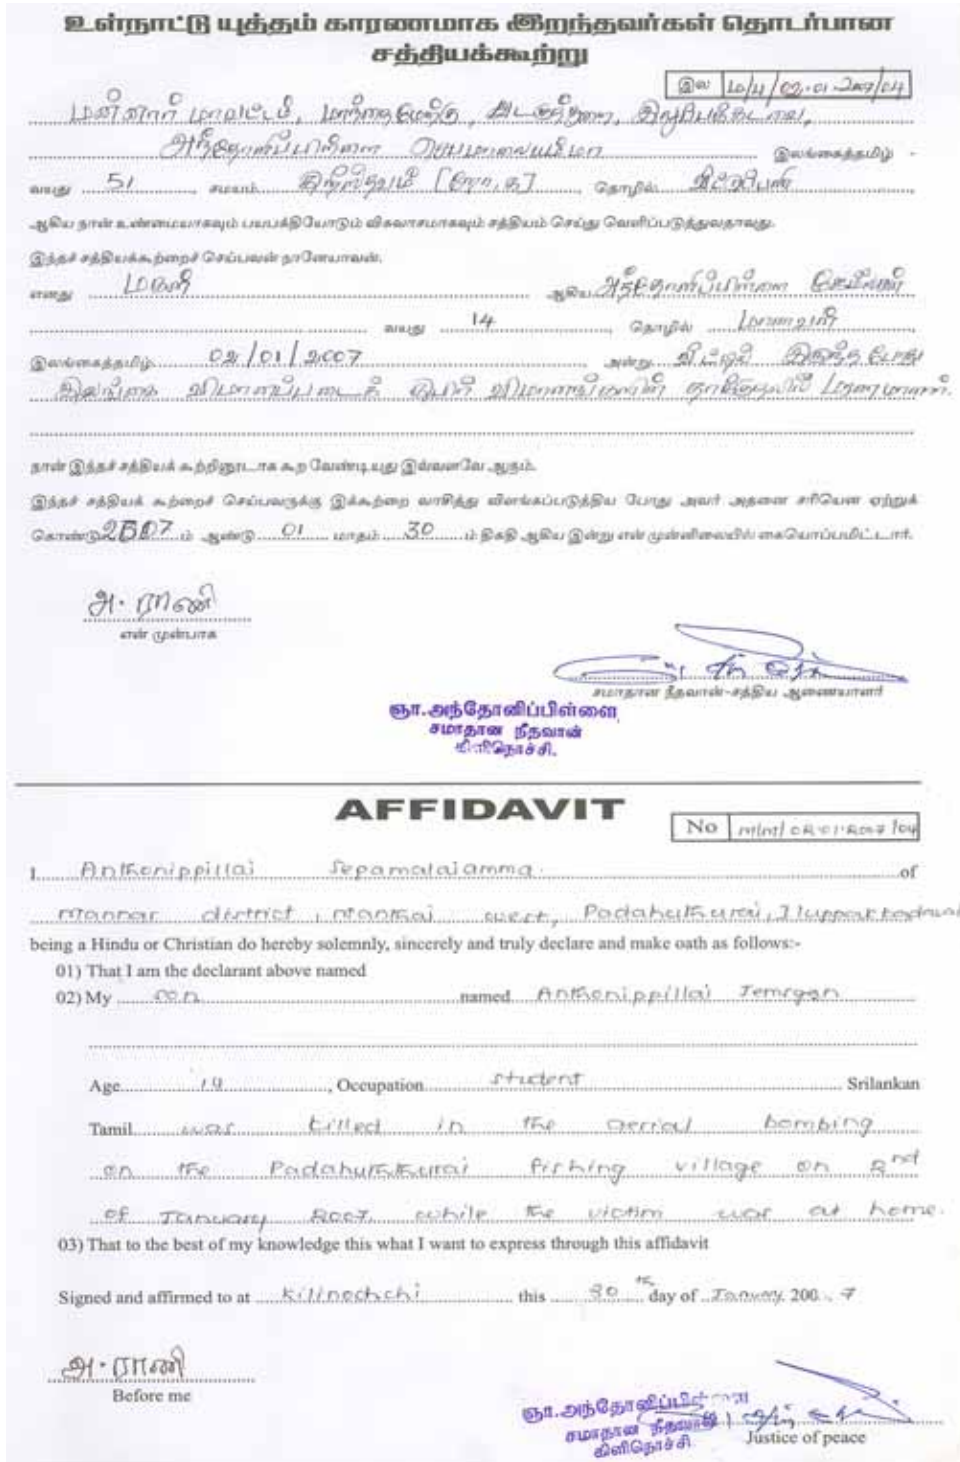 உள்நாட்டு யுத்தம் காரணமாக இறந்தவர்கள் தொடர்பான
சத்தியக்கூற்று
இல
மன்னார் மாவட்டம், மாந்தை மேற்கு,
இலங்கைத்தமிழ்
வயது 51, சமயம் கிறிஸ்தவம், தொழில்
ஆகிய நான் உண்மையாகவும் பயபக்தியோடும் விசுவாசமாகவும் சத்தியம் செய்து வெளிப்படுத்துவதாவது.
இந்தச் சத்தியக்கூற்றைச் செய்பவன் நானேயாவன்.
எனது மகன் ஆகிய அந்தோனிப்பிள்ளை
வயது 14, தொழில் மாணவன்
இலங்கைத்தமிழ் 02/01/2007 அன்று வீட்டில் இருந்த போது
இலங்கை விமானப்படைக் விமானங்களின் தாக்குதலில் மரணமானார்.
நான் இந்தச் சத்தியக் கூற்றினூடாக கூற வேண்டியது இவ்வளவே ஆகும்.
இந்தச் சத்தியக் கூற்றைச் செய்பவருக்கு இக்கூற்றை வாசித்து விளங்கப்படுத்திய போது அவர் அதனை சரியென ஏற்றுக்
கொண்டு 2007 ம் ஆண்டு 01 மாதம் 30 ம் திகதி ஆகிய இன்று என் முன்னிலையில் கையொப்பமிட்டார்.
அ. ராணி
என் முன்பாக
சமாதான நீதவான்-சத்திய ஆணையாளர்
ஞா.அந்தோனிப்பிள்ளை
சமாதான நீதவான்
கிளிநொச்சி.
AFFIDAVIT
No
I Anthonippillai Sepamalaiamma of
Mannar district, Manthai west, Padahuthurai,
being a Hindu or Christian do hereby solemnly, sincerely and truly declare and make oath as follows:-
01) That I am the declarant above named
02) My son named Anthonippillai
Age 14, Occupation student Srilankan
Tamil was killed in the aerial bombing
on the Padahuthurai fishing village on 2nd
of January 2007 while the victim was at home.
03) That to the best of my knowledge this what I want to express through this affidavit
Signed and affirmed to at Killinochchi this 30th day of January 2007
அ. ராணி
Before me
ஞா.அந்தோனிப்பிள்ளை
சமாதான நீதவான்
கிளிநொச்சி
Justice of peace